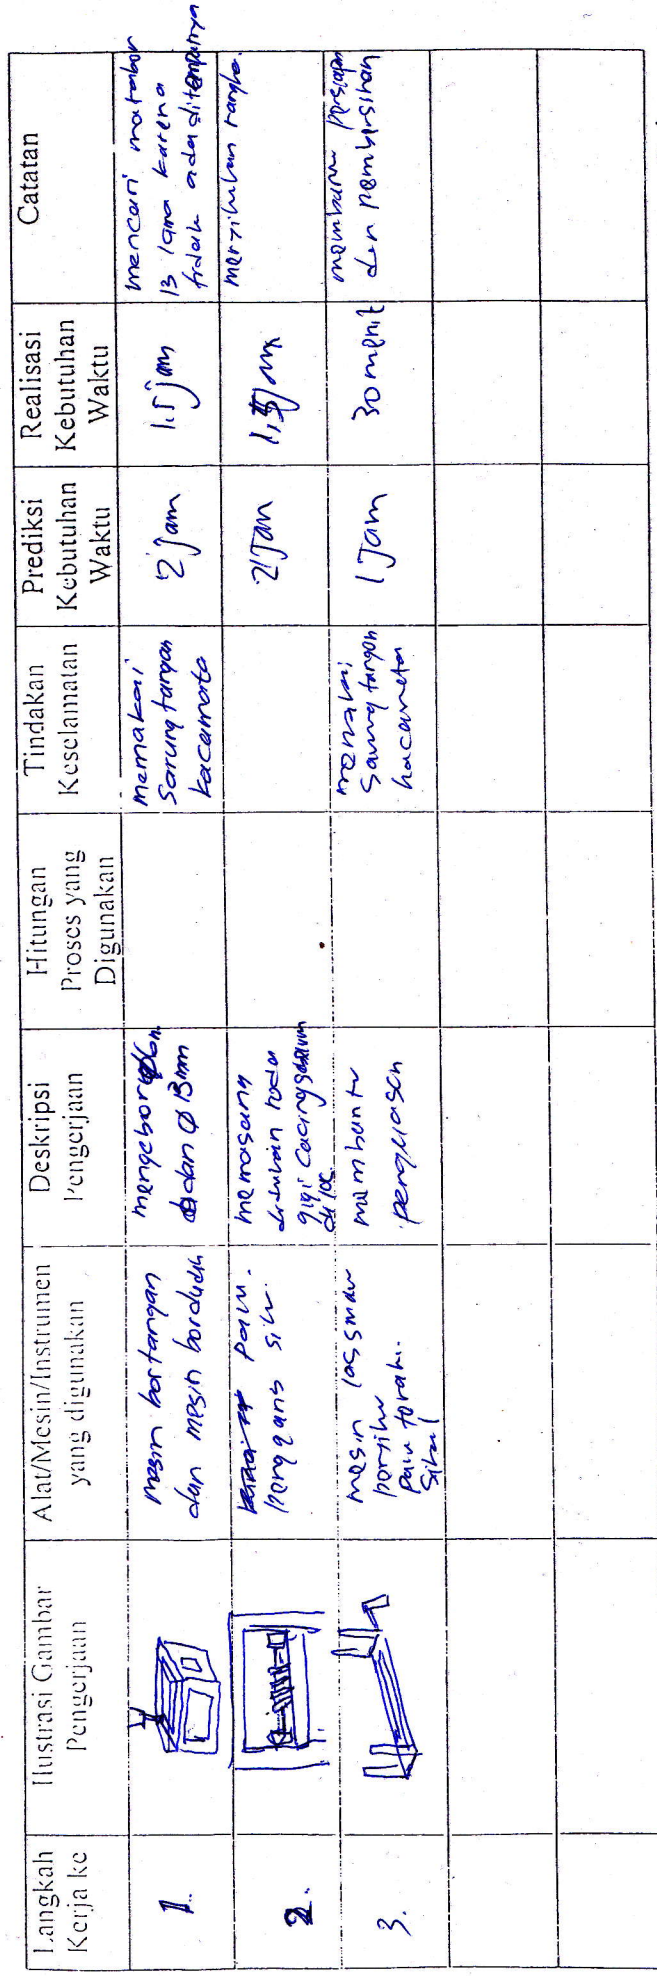 Langkah
Kerja ke
Ilustrasi Gambar
Pengerjaan
Alat/Mesin/Instrumen
yang digunakan
Deskripsi
Pengerjaan
Hitungan
Proses yang
Digunakan
Tindakan
Keselamatan
Prediksi
Kebutuhan
Waktu
Realisasi
Kebutuhan
Waktu
Catatan
1.
mesin bor tangan
dan mesin borduduk
mengebor
dan Ø 13mm
memakai
Sarung tangan
kacamata
2 jam
1.5 jam
mencari matabor
13 lama karena
tidak ada ditempatnya
2.
palu.
penggaris siku.
memasang
dudukan roda
gigi cacing sebelum
di las.
2 Jam
1,5 Jam
menyikukan rangka.
3.
mesin las smaw
penyiku
palu terak.
sikat
membantu
pengelasan
memakai
Sarung tangan
kacamata
1 Jam
30 menit
membantu persiapan
dan pembersihan